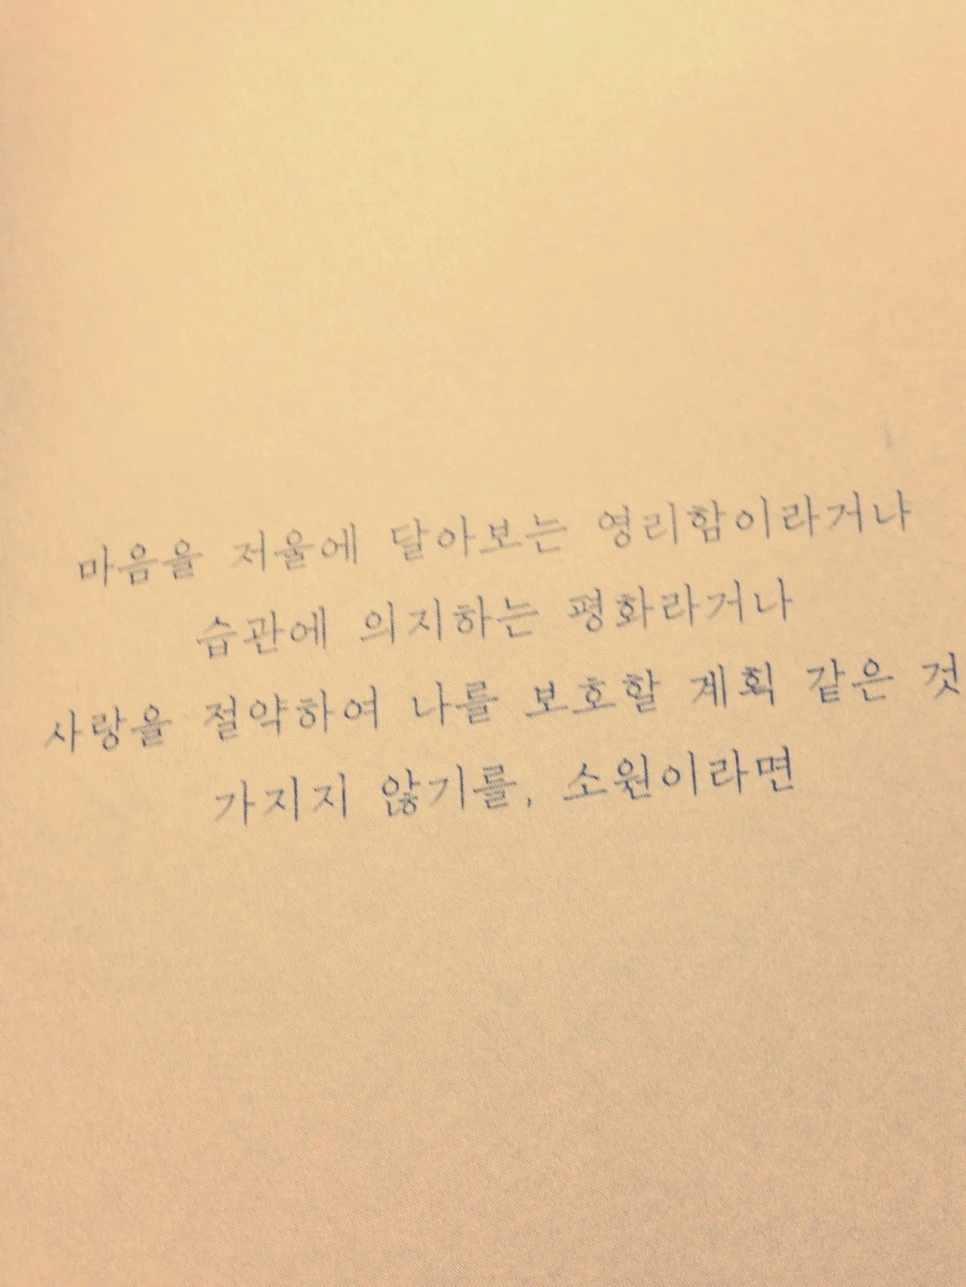 마음을 저울에 달아보는 영리함이라거나
습관에 의지하는 평화라거나
사랑을 절약하여 나를 보호할 계획 같은 것
가지지 않기를, 소원이라면